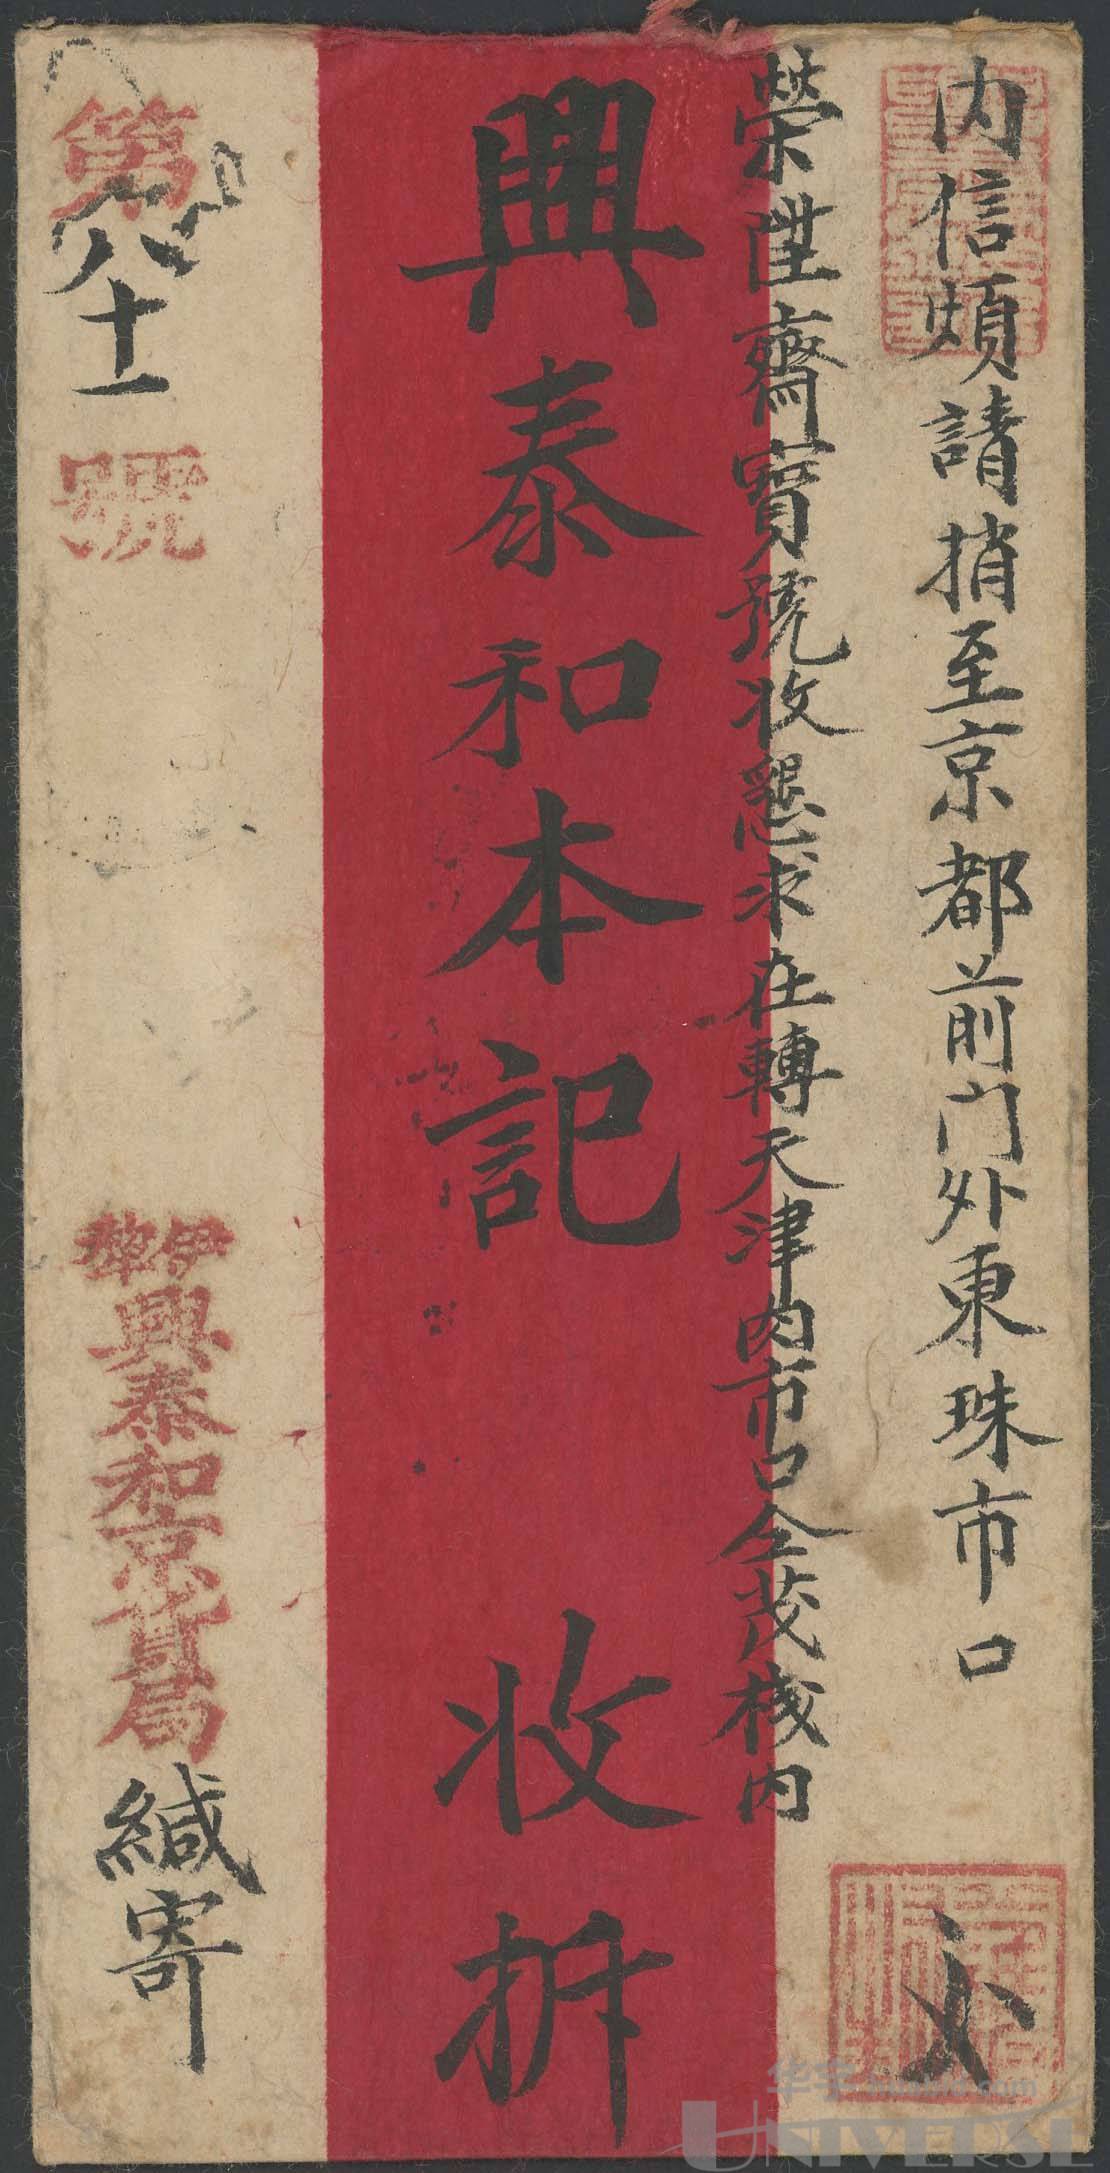 内信煩請捎至京都前门外東珠市口
榮陞齋寶號收懇求在轉天津内市口全茂棧内
興泰和本記 收拆
第八十一號
伊犂
興泰和京貨局緘寄
华宇
UNIVERSE